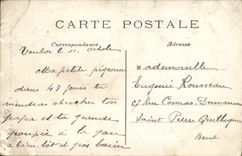 CARTE POSTALE
Correspondance
Adresse
Toulon le 11 octobre
Ma petite pigeonne
dans 48 jours tu
viendras chercher ton
papa et ta grande
poupée à la gare
à bientôt et gros baisers
Mademoiselle
Eugénie Rousseau
27 Rue Cosmao Dumanoir
Saint Pierre Quilbignon
Brest